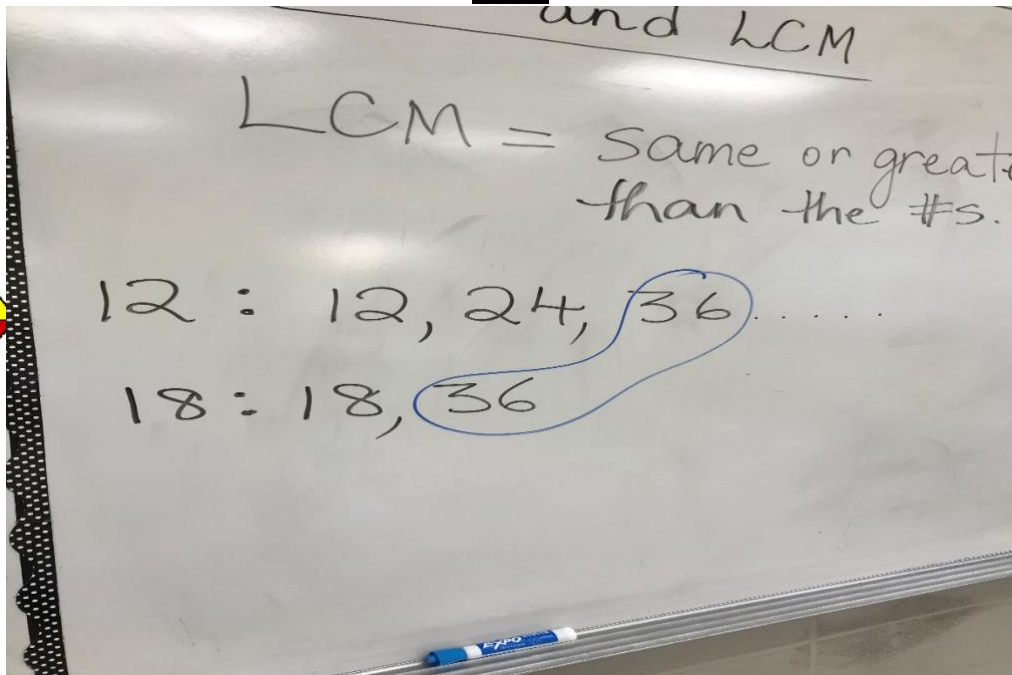 and LCM
LCM = same or greate
than the #s.
12 : 12, 24, 36 . . . . .
18 : 18, 36
EXPO